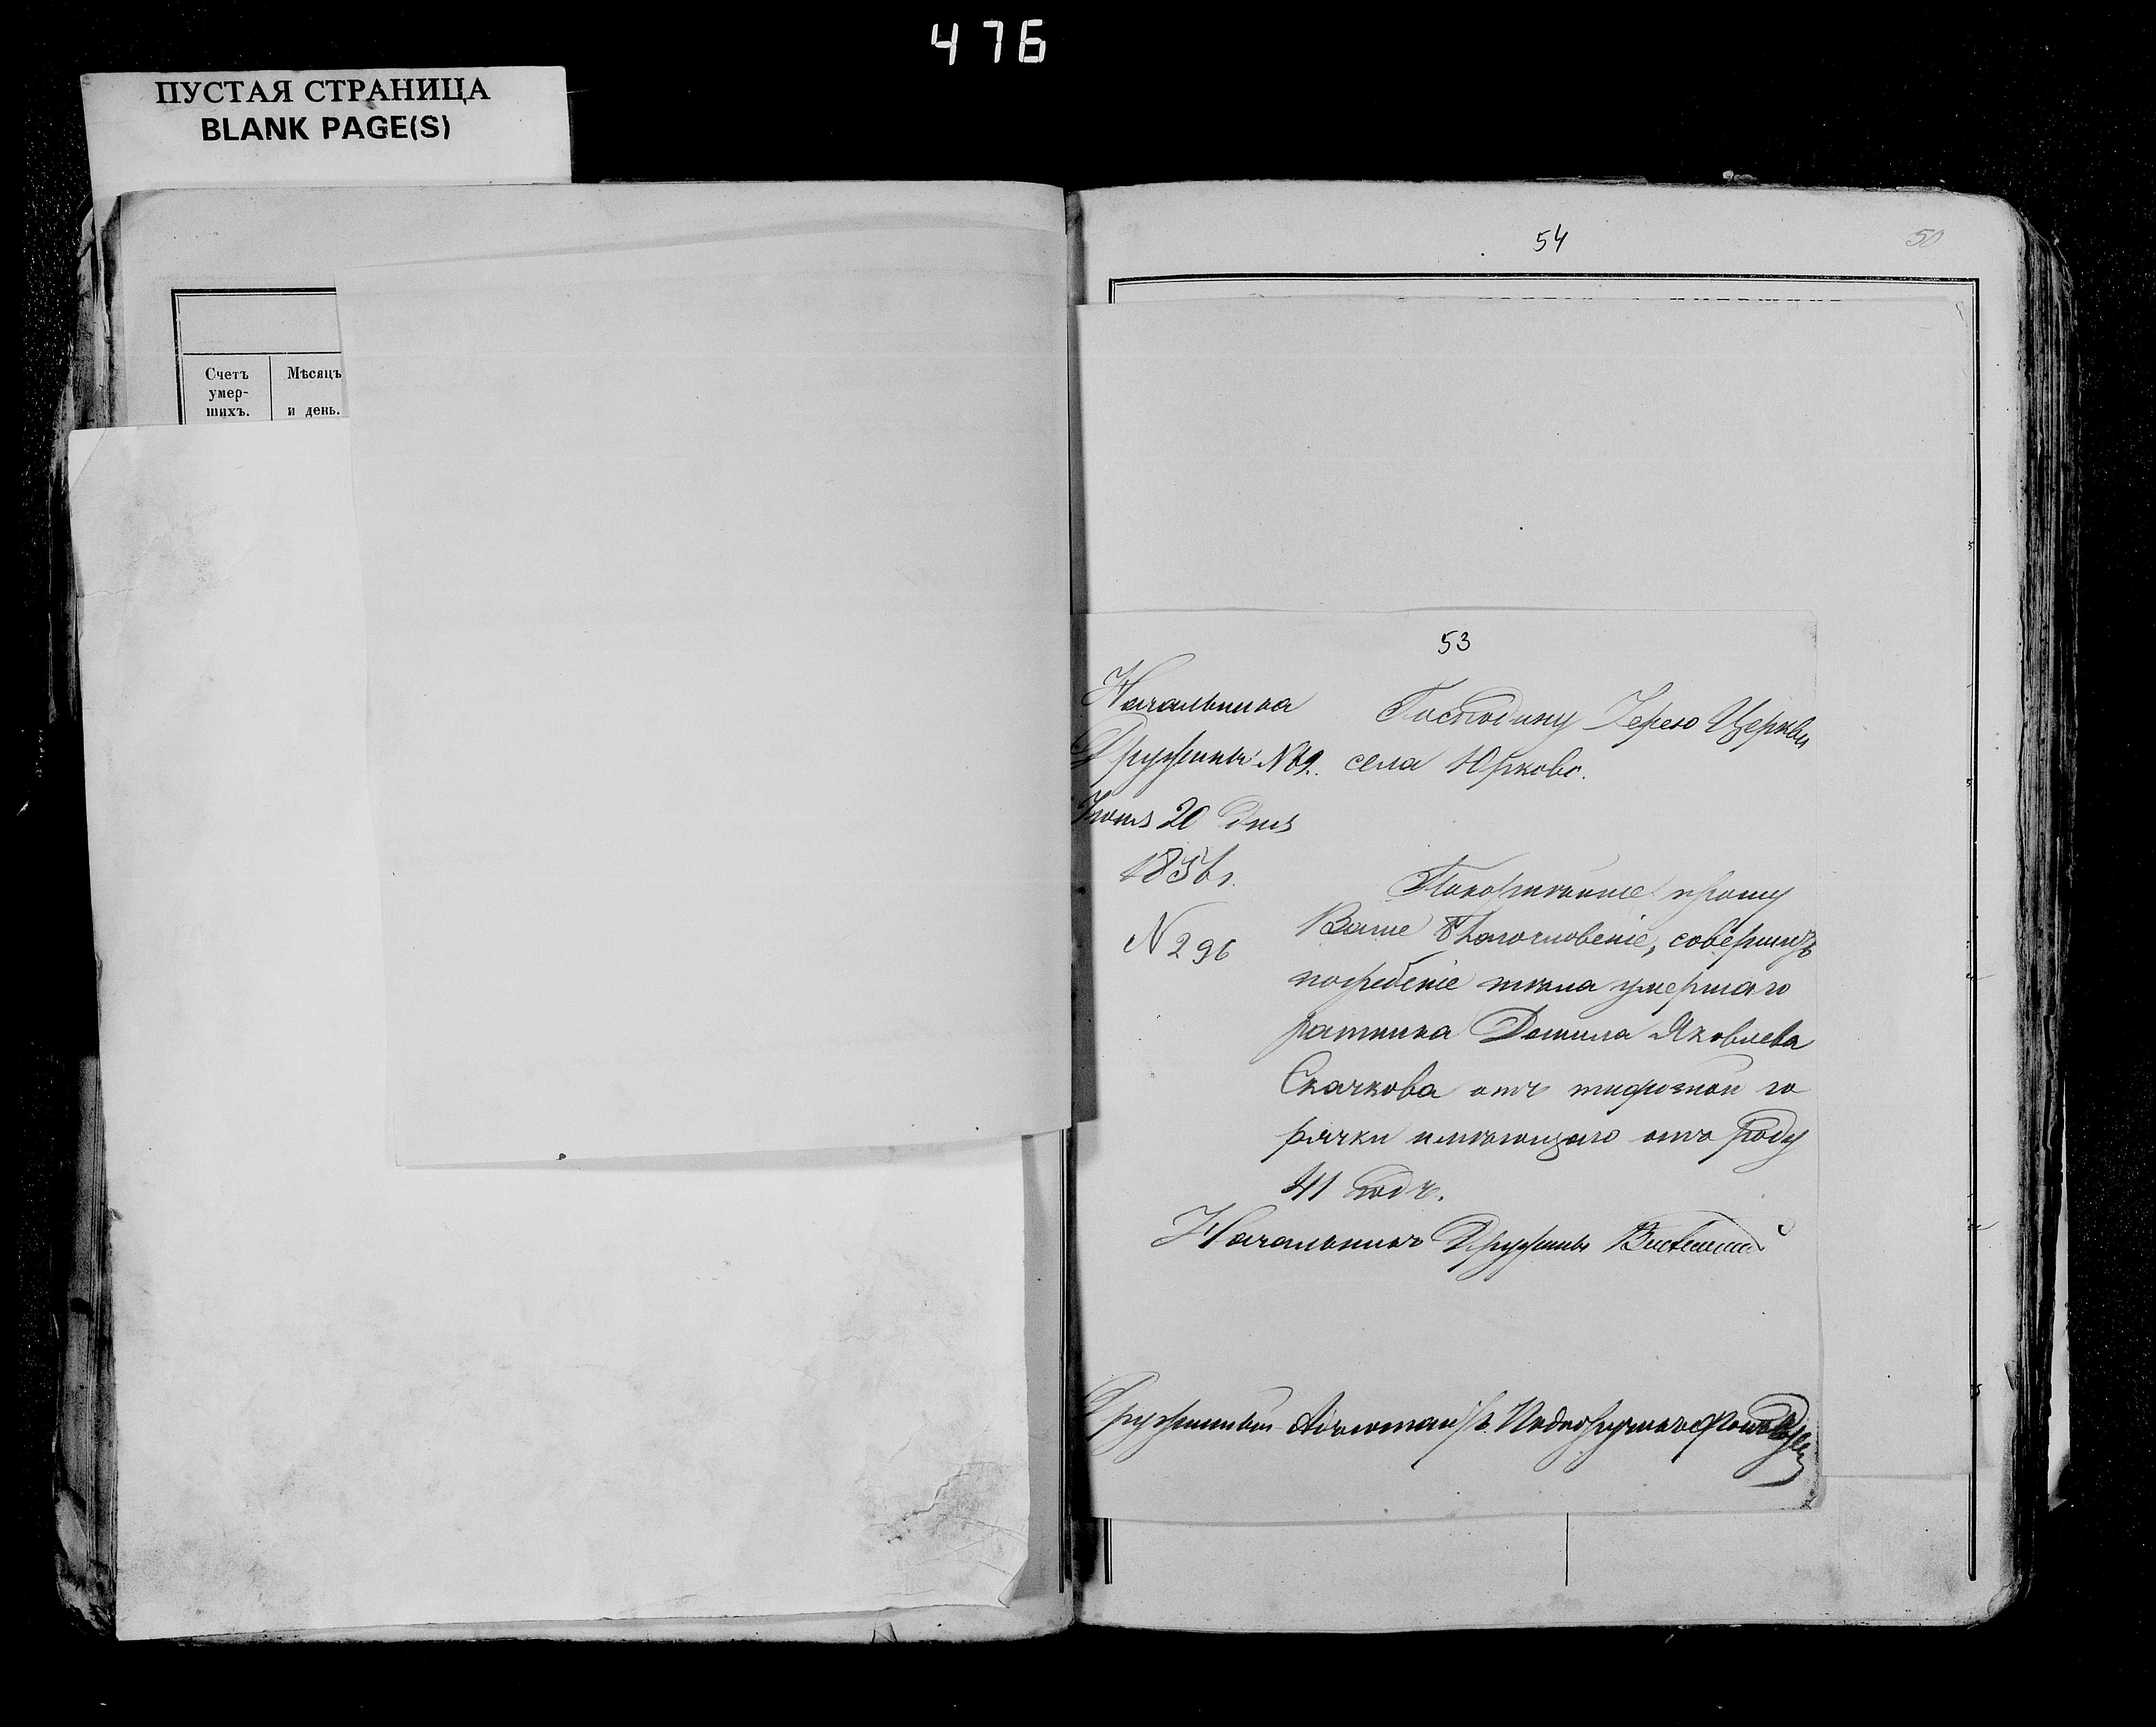 476
ПУСТАЯ СТРАНИЦА
BLANK PAGE(S)
Счетъ
умер-
шихъ.
Мѣсяцъ
и день.
54
50
53
Начальника
Дружины №
20 дня
1856 г.
№ 296
Господину Іерею Церкви
села Юрково.
Покорнѣйше прошу
Ваше Благословеніе, совершить
погребеніе тѣла умершаго
ратника Данила Яковлева
Скачкова отъ тифозной го
рячки имѣющаго отъ роду
41 годъ.
Начальникъ Дружины
Дружинный Адъютантъ Подпоручикъ